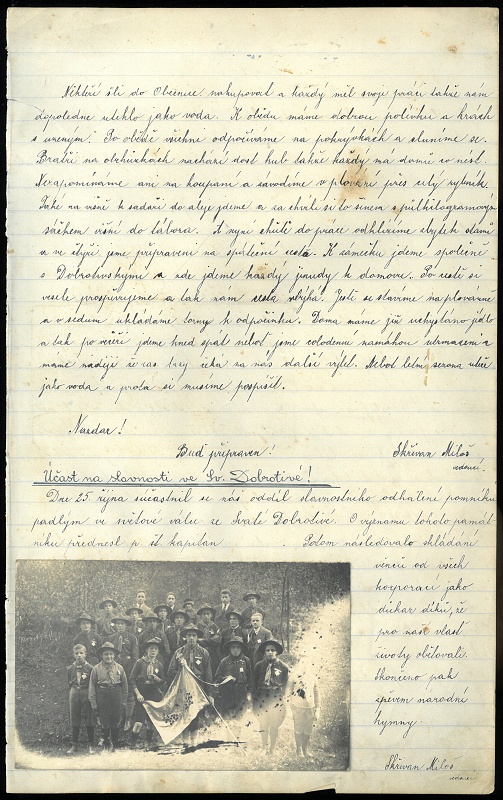 Někteří šli do Obecnice nakupovat a každý měl svoji práci takže nám
dopoledne uteklo jako voda. K obědu máme dobrou polévku a hrách
s uzeným. Po obědě všichni odpočíváme na pokrývkách a sluníme se.
Bratři na obhůzkách nachází dost hub takže každý má domů co nést.
Nezapomínáme ani na koupání a závodíme v plování přes celý rybník.
Také na višně k sadaři do aleje jdeme a za chvíli si to šineme s půlkilogramovým
sáčkem višní do tábora. A nyní chutě do práce odklízíme zbytek stanů
a ve čtyři jsme připraveni na zpáteční cestu. K zámečku jdeme společně
s Dobrotivskými a zde jdeme každý jinudy k domovu. Po cestě si
vesele prospěvujeme a tak nám cesta ubíhá. Ještě se stavíme na plovárně
a v sedum ukládáme torny k odpočinku. Doma máme již uchystáno jídlo
a tak po večeři jdeme hned spát neboť jsme celodenní námahou utrmáceni a
máme naději že zas brzy čeká na nás další výlet. Neboť letní sezona uteče
jako voda a proto si musíme pospíšit.
Nazdar!
Buď připraven! Skřivan Miloš
Účast na slavnosti ve Sv. Dobrotivé!
Dne 25. října súčastnil se náš oddíl slavnostního odhalení pomníku
padlým ve světové válce ve Svaté Dobrotivé. O významu tohoto památ
níku přednesl p. št. kapitán . Potom následovalo skládání
věnců od všech
korporací jako
důkaz díků, že
pro naši vlast
životy obětovali.
Skončeno pak
zpěvem národní
hymny.
Skřivan Miloš